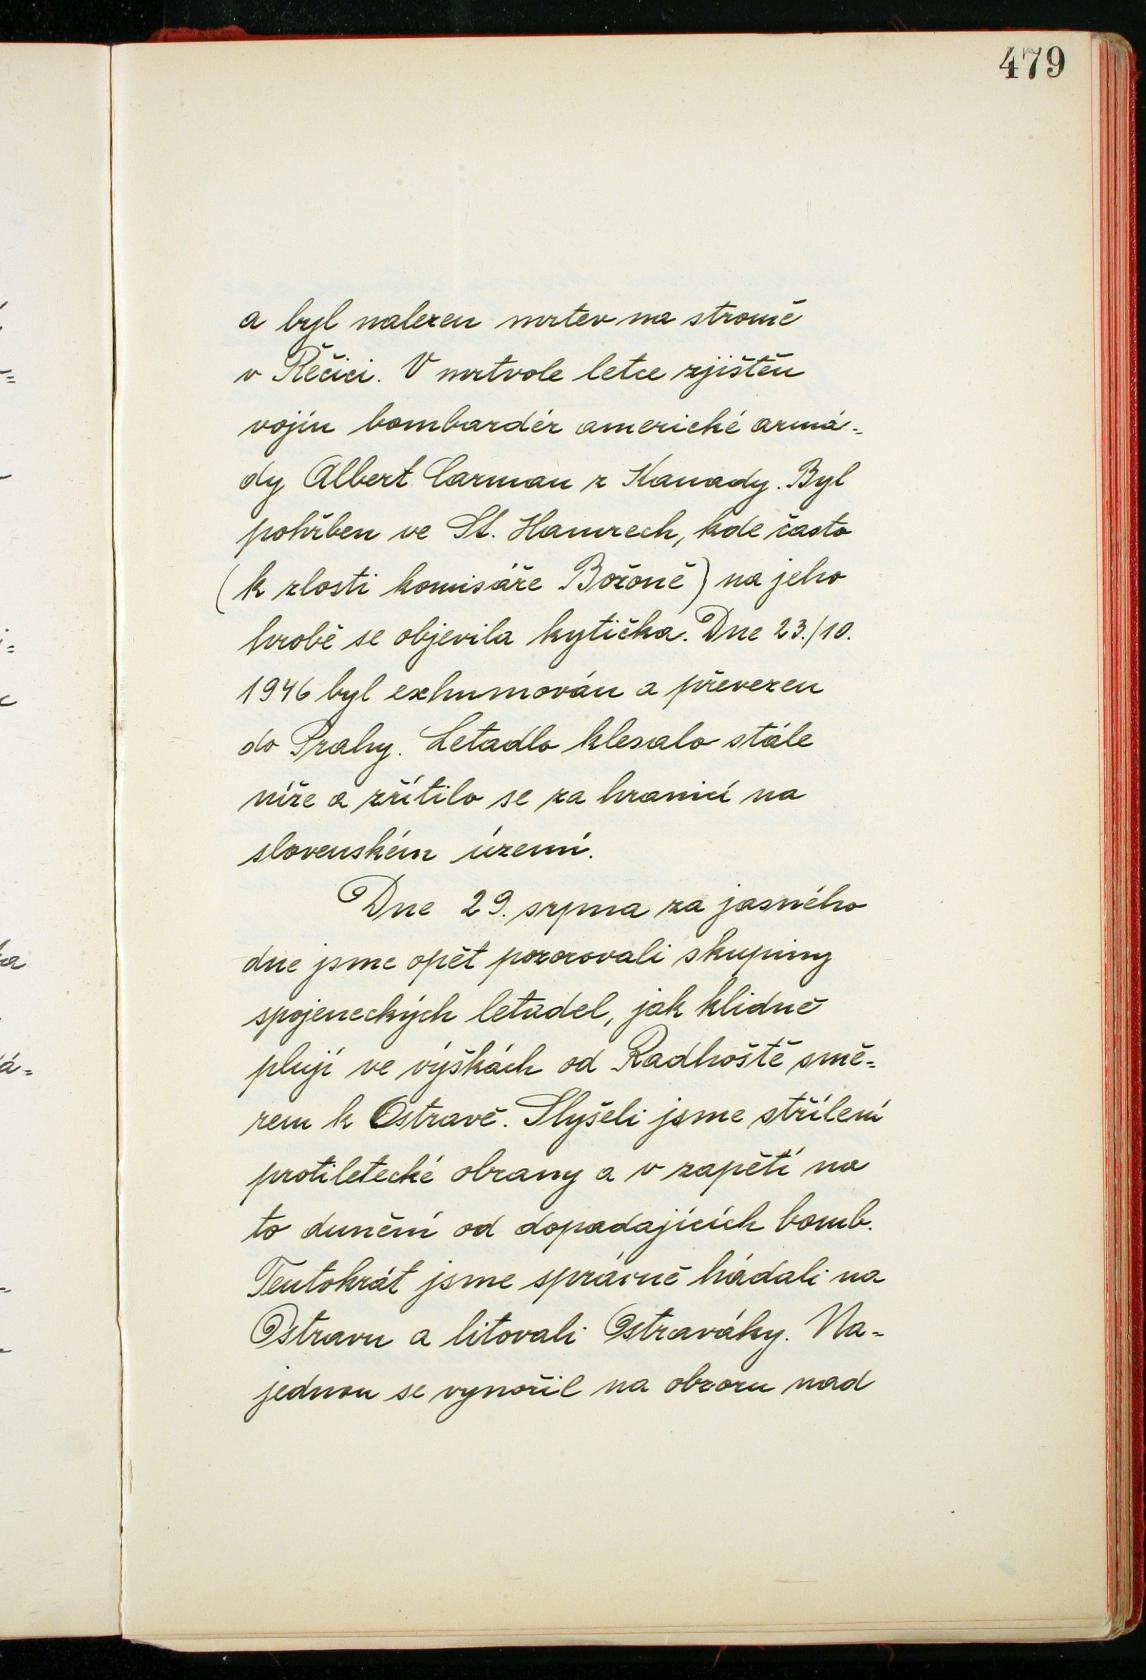 479
a byl nalezen mrtev na stromě
v Řečici. V mrtvole letce zjištěn
vojín bombardér americké armá-
dy Albert Carman z Kanady. Byl
pohřben ve St. Hamrech, kde často
(k zlosti komisáře Božoně) na jeho
hrobě se objevila kytička. Dne 23./10.
1946 byl exhumován a převezen
do Prahy. Letadlo klesalo stále
níže a zřítilo se za hranicí na
slovenském území.
Dne 29. srpna za jasného
dne jsme opět pozorovali skupiny
spojeneckých letadel, jak klidně
plují ve výškách od Radhoště smě-
rem k Ostravě. Slyšeli jsme střílení
protiletecké obrany a v zapětí na
to dunění od dopadajících bomb.
Tentokrát jsme správně hádali na
Ostravu a litovali Ostraváky. Na-
jednou se vynořil na obzoru nad